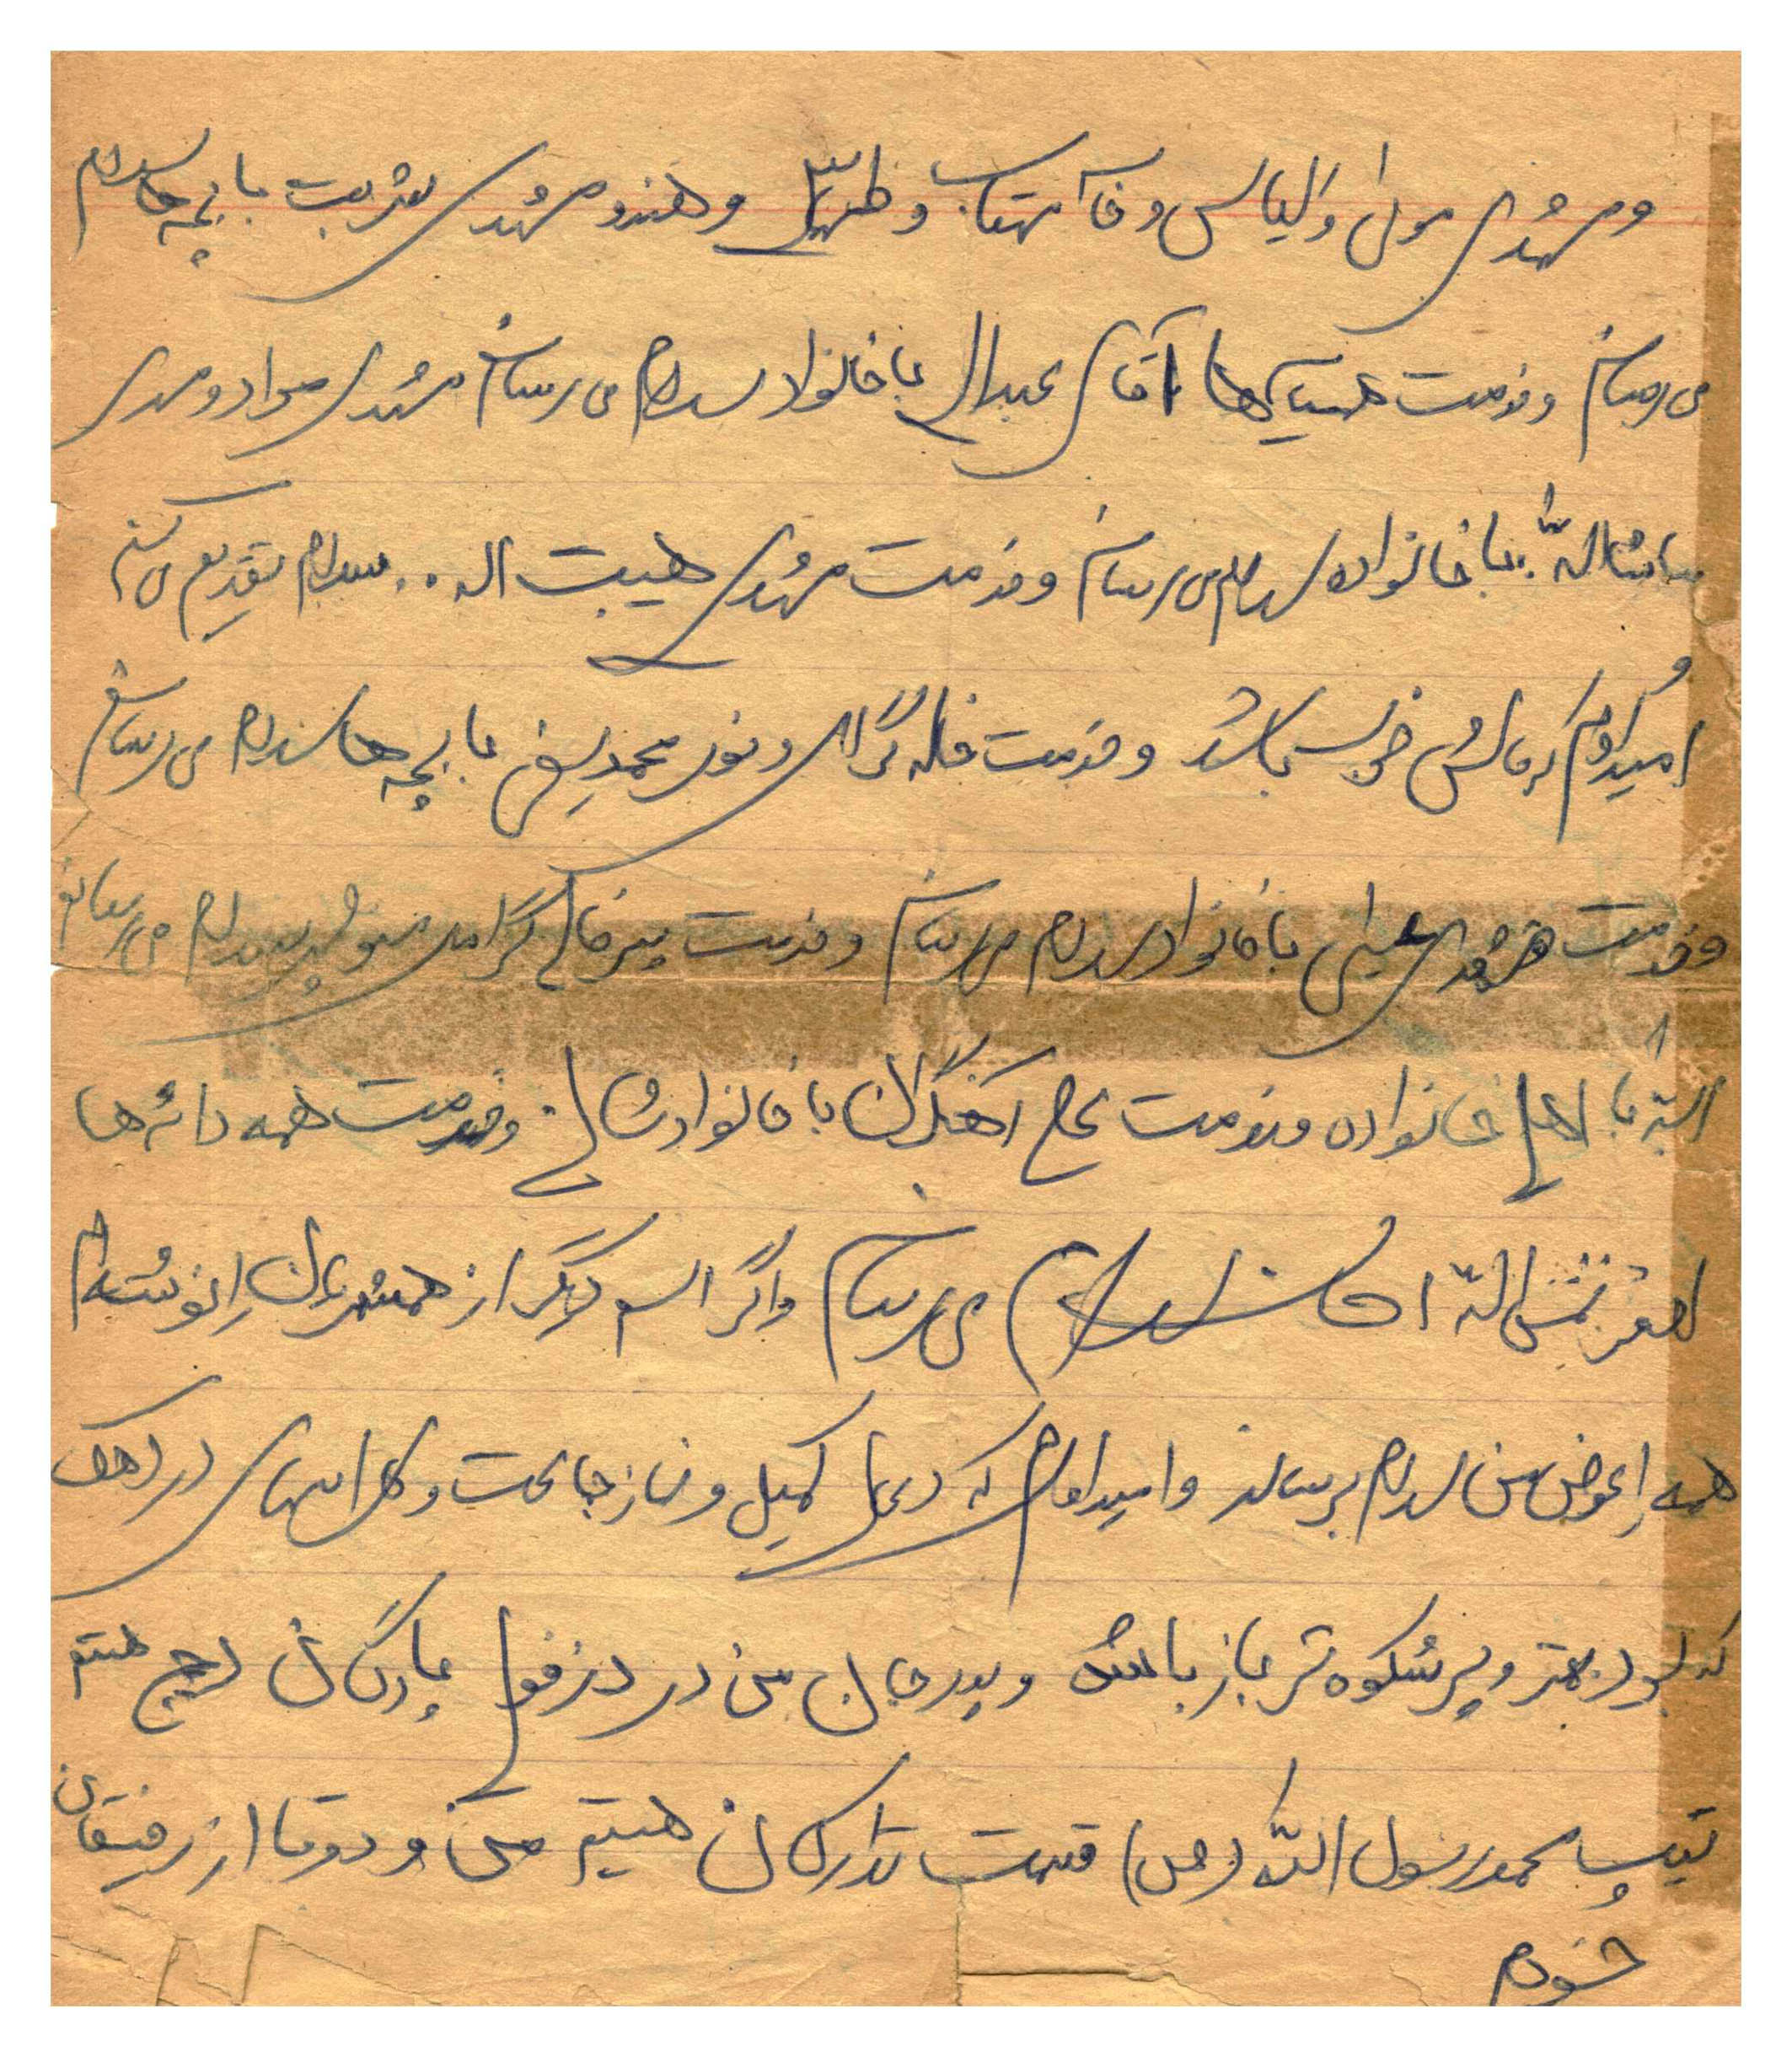 و مهدی مولی و الیاس و خا آفتاب و طهماس و هندو مهدی شربت با بچه ها سلام
می رسانم و خدمت همسایه ها آقای عبدالی با خانواده سلام می رسانم مهدی مراد و مهدی
ماشاالله با خانواده سلام می رسانم و خدمت مهدی هیبت اله .. سلام تقدیم می کنم
و امیدوارم که حالش خوب باشد و خدمت خاله گرامی و نور محمد با بچه ها سلام می رسانم
و خدمت با خانواده سلام می رسانم و خدمت پسر خاله گرامی سلام می رسانم
البته با اهل خانواده و خدمت با خانواده و خدمت همه دائی ها
شمس الله سلام می رسانم و اگر اسم دیگر از همشهریان را ننوشته ام
همه را عوض من سلام برسانند و امیدوارم که دعای کمیل و نماز جماعت و کلاسهای در دهک
که بود بهتر و پرشکوه تر باز باشد و پدر جان من در دزفول پادگان هستم
تیپ محمد رسول الله (ص) قسمت تدارکات هستیم من و دو تا از رفیقان
خودم